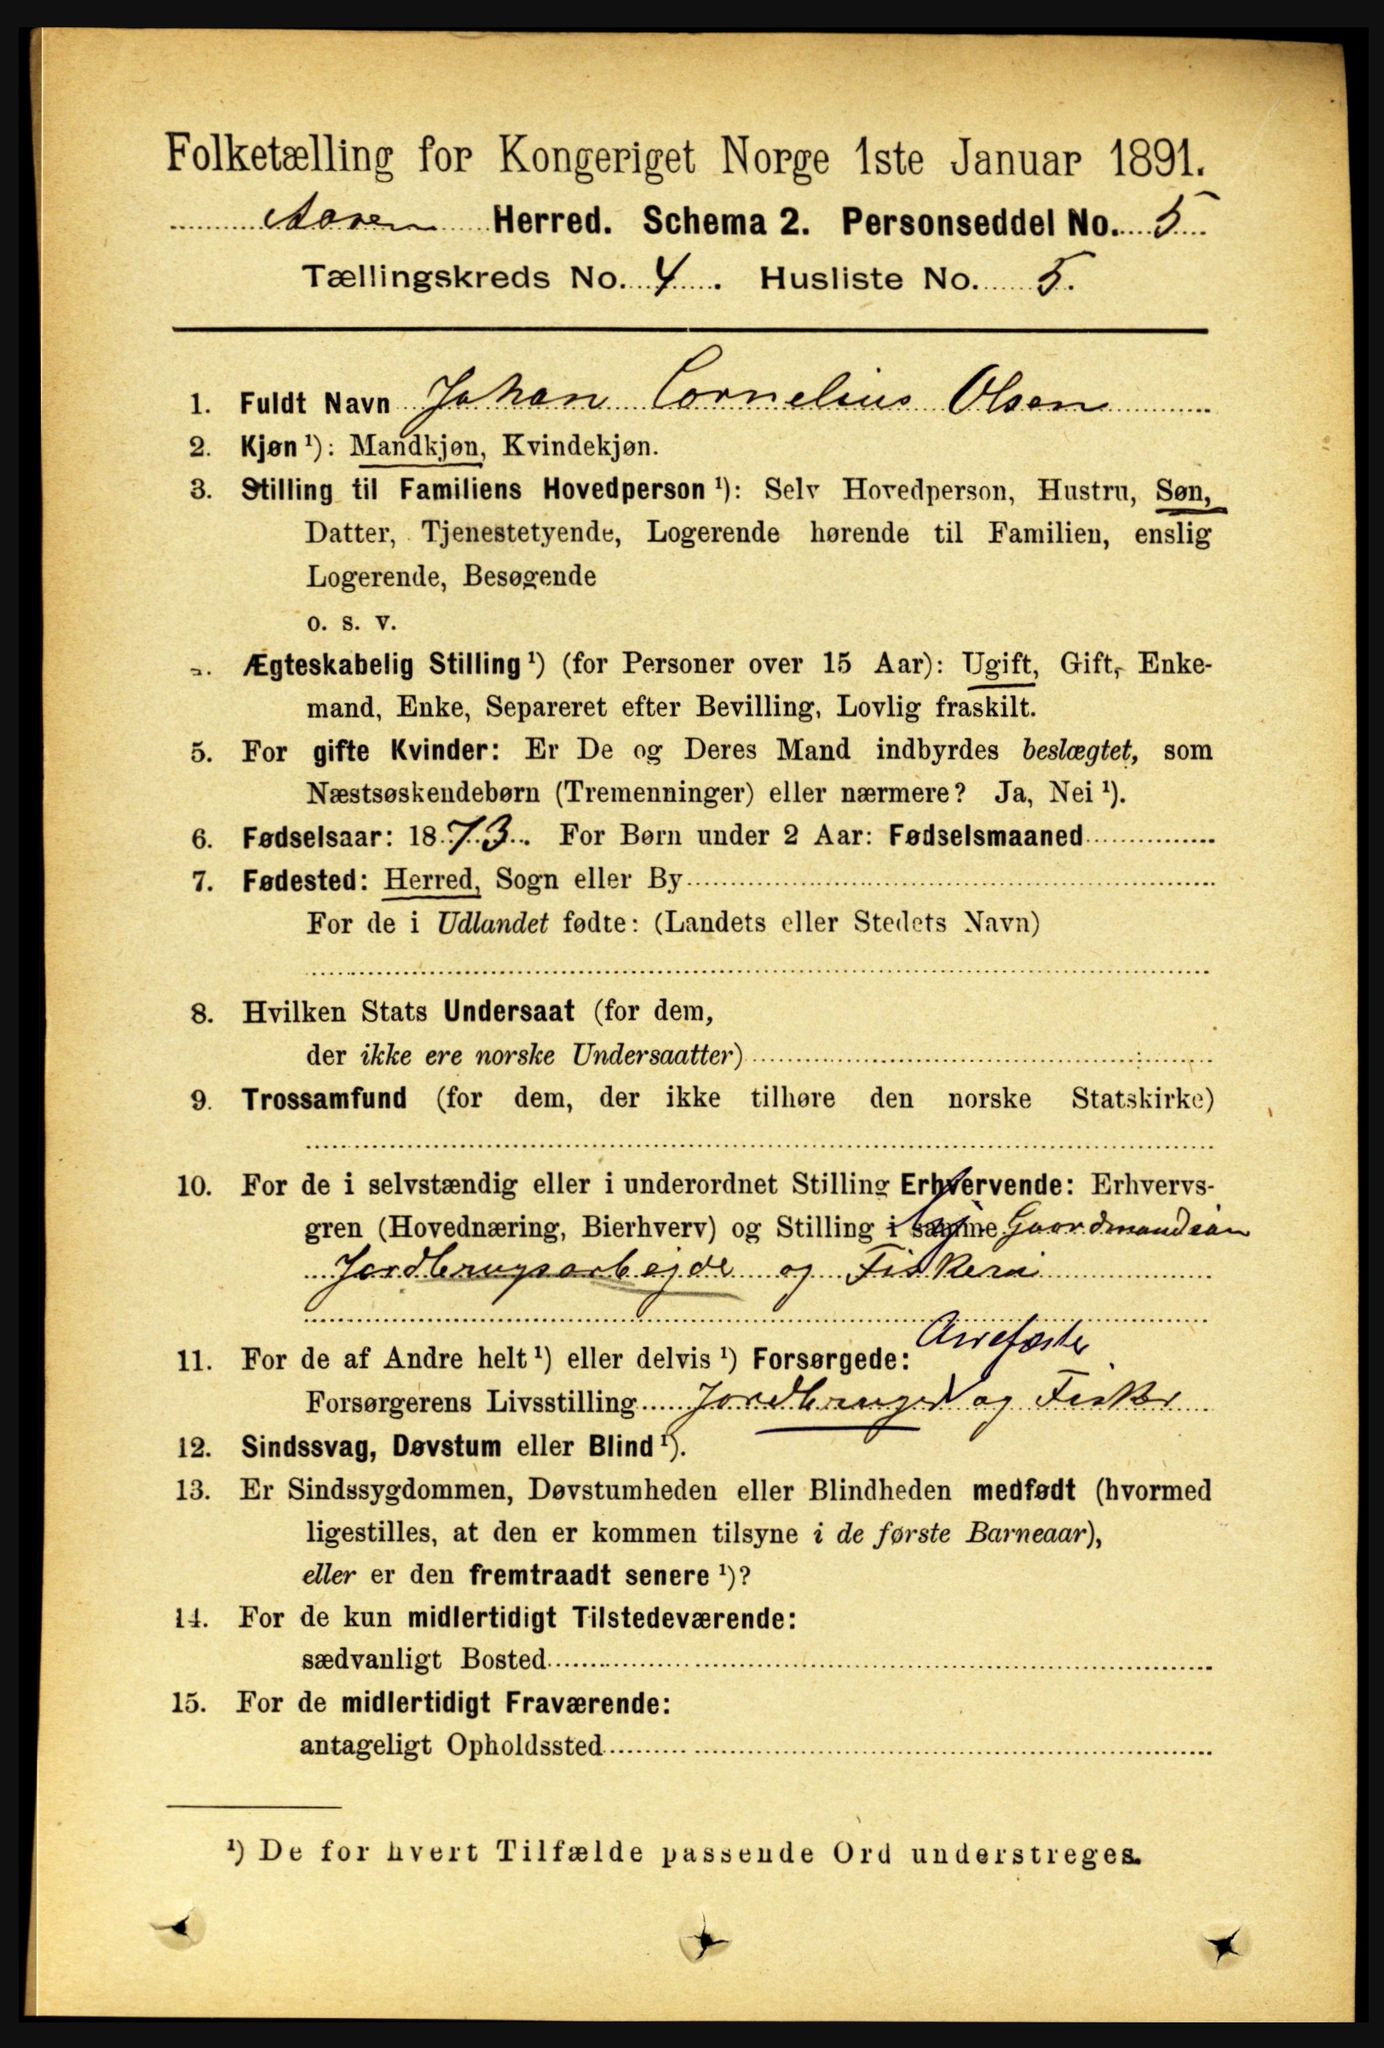 Folketælling for Kongeriget Norge 1ste Januar 1891.
Herred. Schema 2. Personseddel No. 5
Tællingskreds No. 4. Husliste No. 5.
1. Fuldt Navn Johan Cornelius Olsen
2. Kjøn ¹): Mandkjøn, Kvindekjøn.
3. Stilling til Familiens Hovedperson ¹): Selv Hovedperson, Hustru, Søn,
Datter, Tjenestetyende, Logerende hørende til Familien, enslig
Logerende, Besøgende
o. s. v.
Ægteskabelig Stilling ¹) (for Personer over 15 Aar): Ugift, Gift, Enke-
mand, Enke, Separeret efter Bevilling, Lovlig fraskilt.
5. For gifte Kvinder: Er De og Deres Mand indbyrdes beslægtet, som
Næstsøskendebørn (Tremenninger) eller nærmere? Ja, Nei ¹).
6. Fødselsaar: 1873. For Børn under 2 Aar: Fødselsmaaned
7. Fødested: Herred, Sogn eller By
For de i Udlandet fødte: (Landets eller Stedets Navn)
8. Hvilken Stats Undersaat (for dem,
der ikke ere norske Undersaatter)
9. Trossamfund (for dem, der ikke tilhøre den norske Statskirke)
10. For de i selvstændig eller i underordnet Stilling Erhvervende: Erhvervs-
gren (Hovednæring, Bierhverv) og Stilling i samme Gaardmandsøn
Jordbrugsarbejde og Fiskeri
11. For de af Andre helt ¹) eller delvis ¹) Forsørgede:
Forsørgerens Livsstilling Jordbruger og Fisker
12. Sindssvag, Døvstum eller Blind ¹).
13. Er Sindssygdommen, Døvstumheden eller Blindheden medfødt (hvormed
ligestilles, at den er kommen tilsyne i de første Barneaar),
eller er den fremtraadt senere ¹)?
14. For de kun midlertidigt Tilstedeværende:
sædvanligt Bosted
15. For de midlertidigt Fraværende:
antageligt Opholdssted
¹) De for hvert Tilfælde passende Ord understreges.